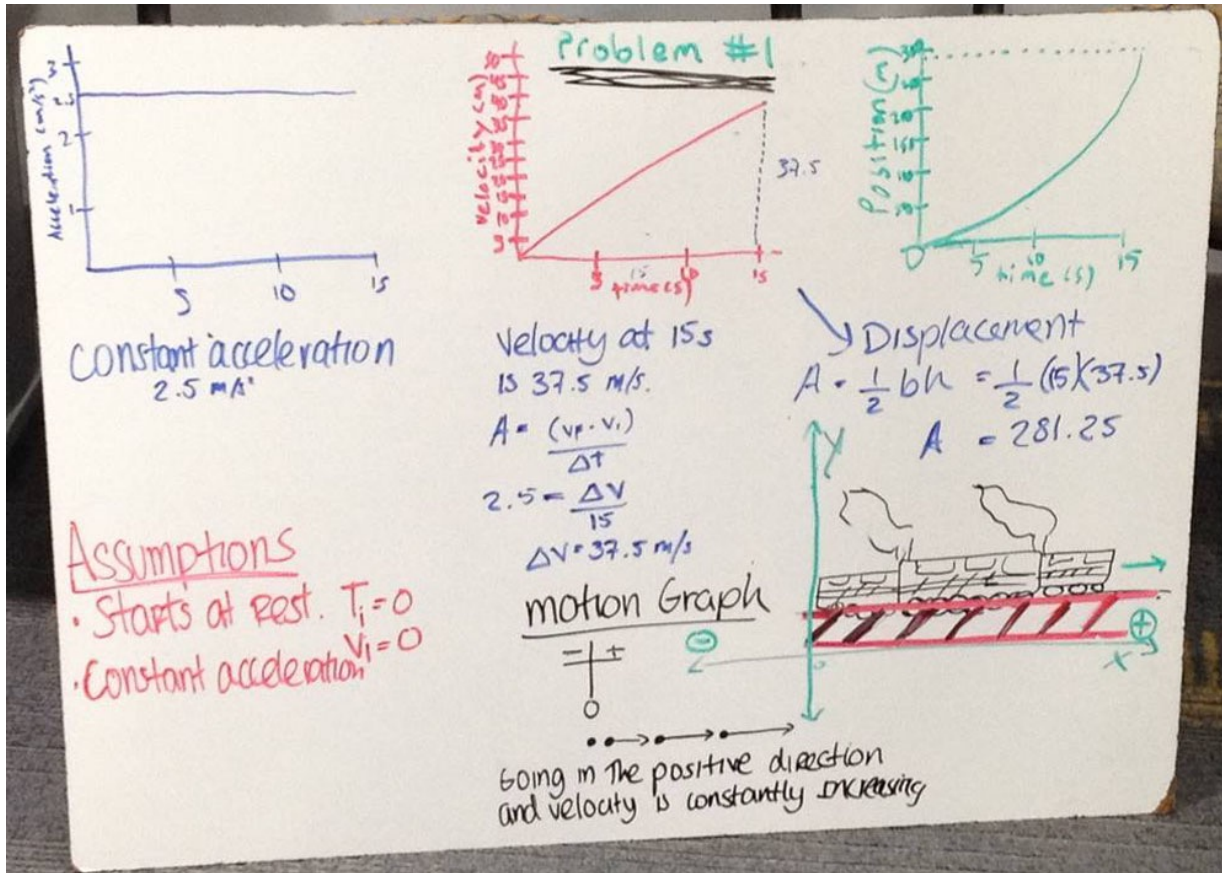 Problem #1
Acceleration (m/s²)
2
1
5
10
15
constant acceleration
2.5 m/s²
velocity (m)
37.5
5
10
15
time (s)
velocity at 15s
is 37.5 m/s.
A = (vf - vi)
Δt
2.5 = ΔV
15
ΔV = 37.5 m/s
Position (m)
0
5
10
15
time (s)
Displacement
A = 1/2 bh = 1/2 (15)(37.5)
A = 281.25
Assumptions
• Starts at Rest. Ti = 0
Vi = 0
• Constant acceleration
motion Graph
- +
Y
X
- +
Going in The positive direction
and velocity is constantly increasing